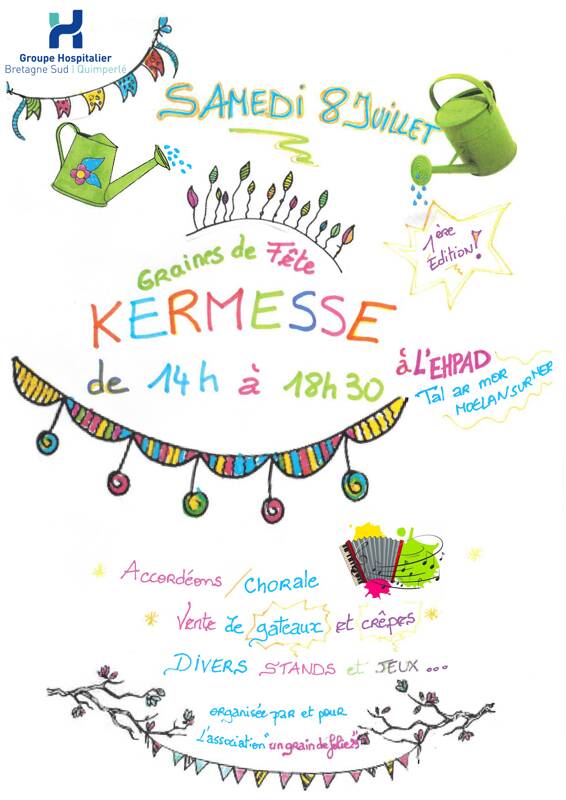 Groupe Hospitalier
Bretagne Sud | Quimperlé
SAMEDI 8 Juillet
1ère
Edition!
Graines de Fête
KERMESSE
de 14h à 18h30
à L'EHPAD
Tal ar mor
MOËLAN SUR MER
Accordéons / CHORALE
Vente de gâteaux et crêpes
DIVERS STANDS et JEUX...
organisée par et pour
L'association "un grain de folie"